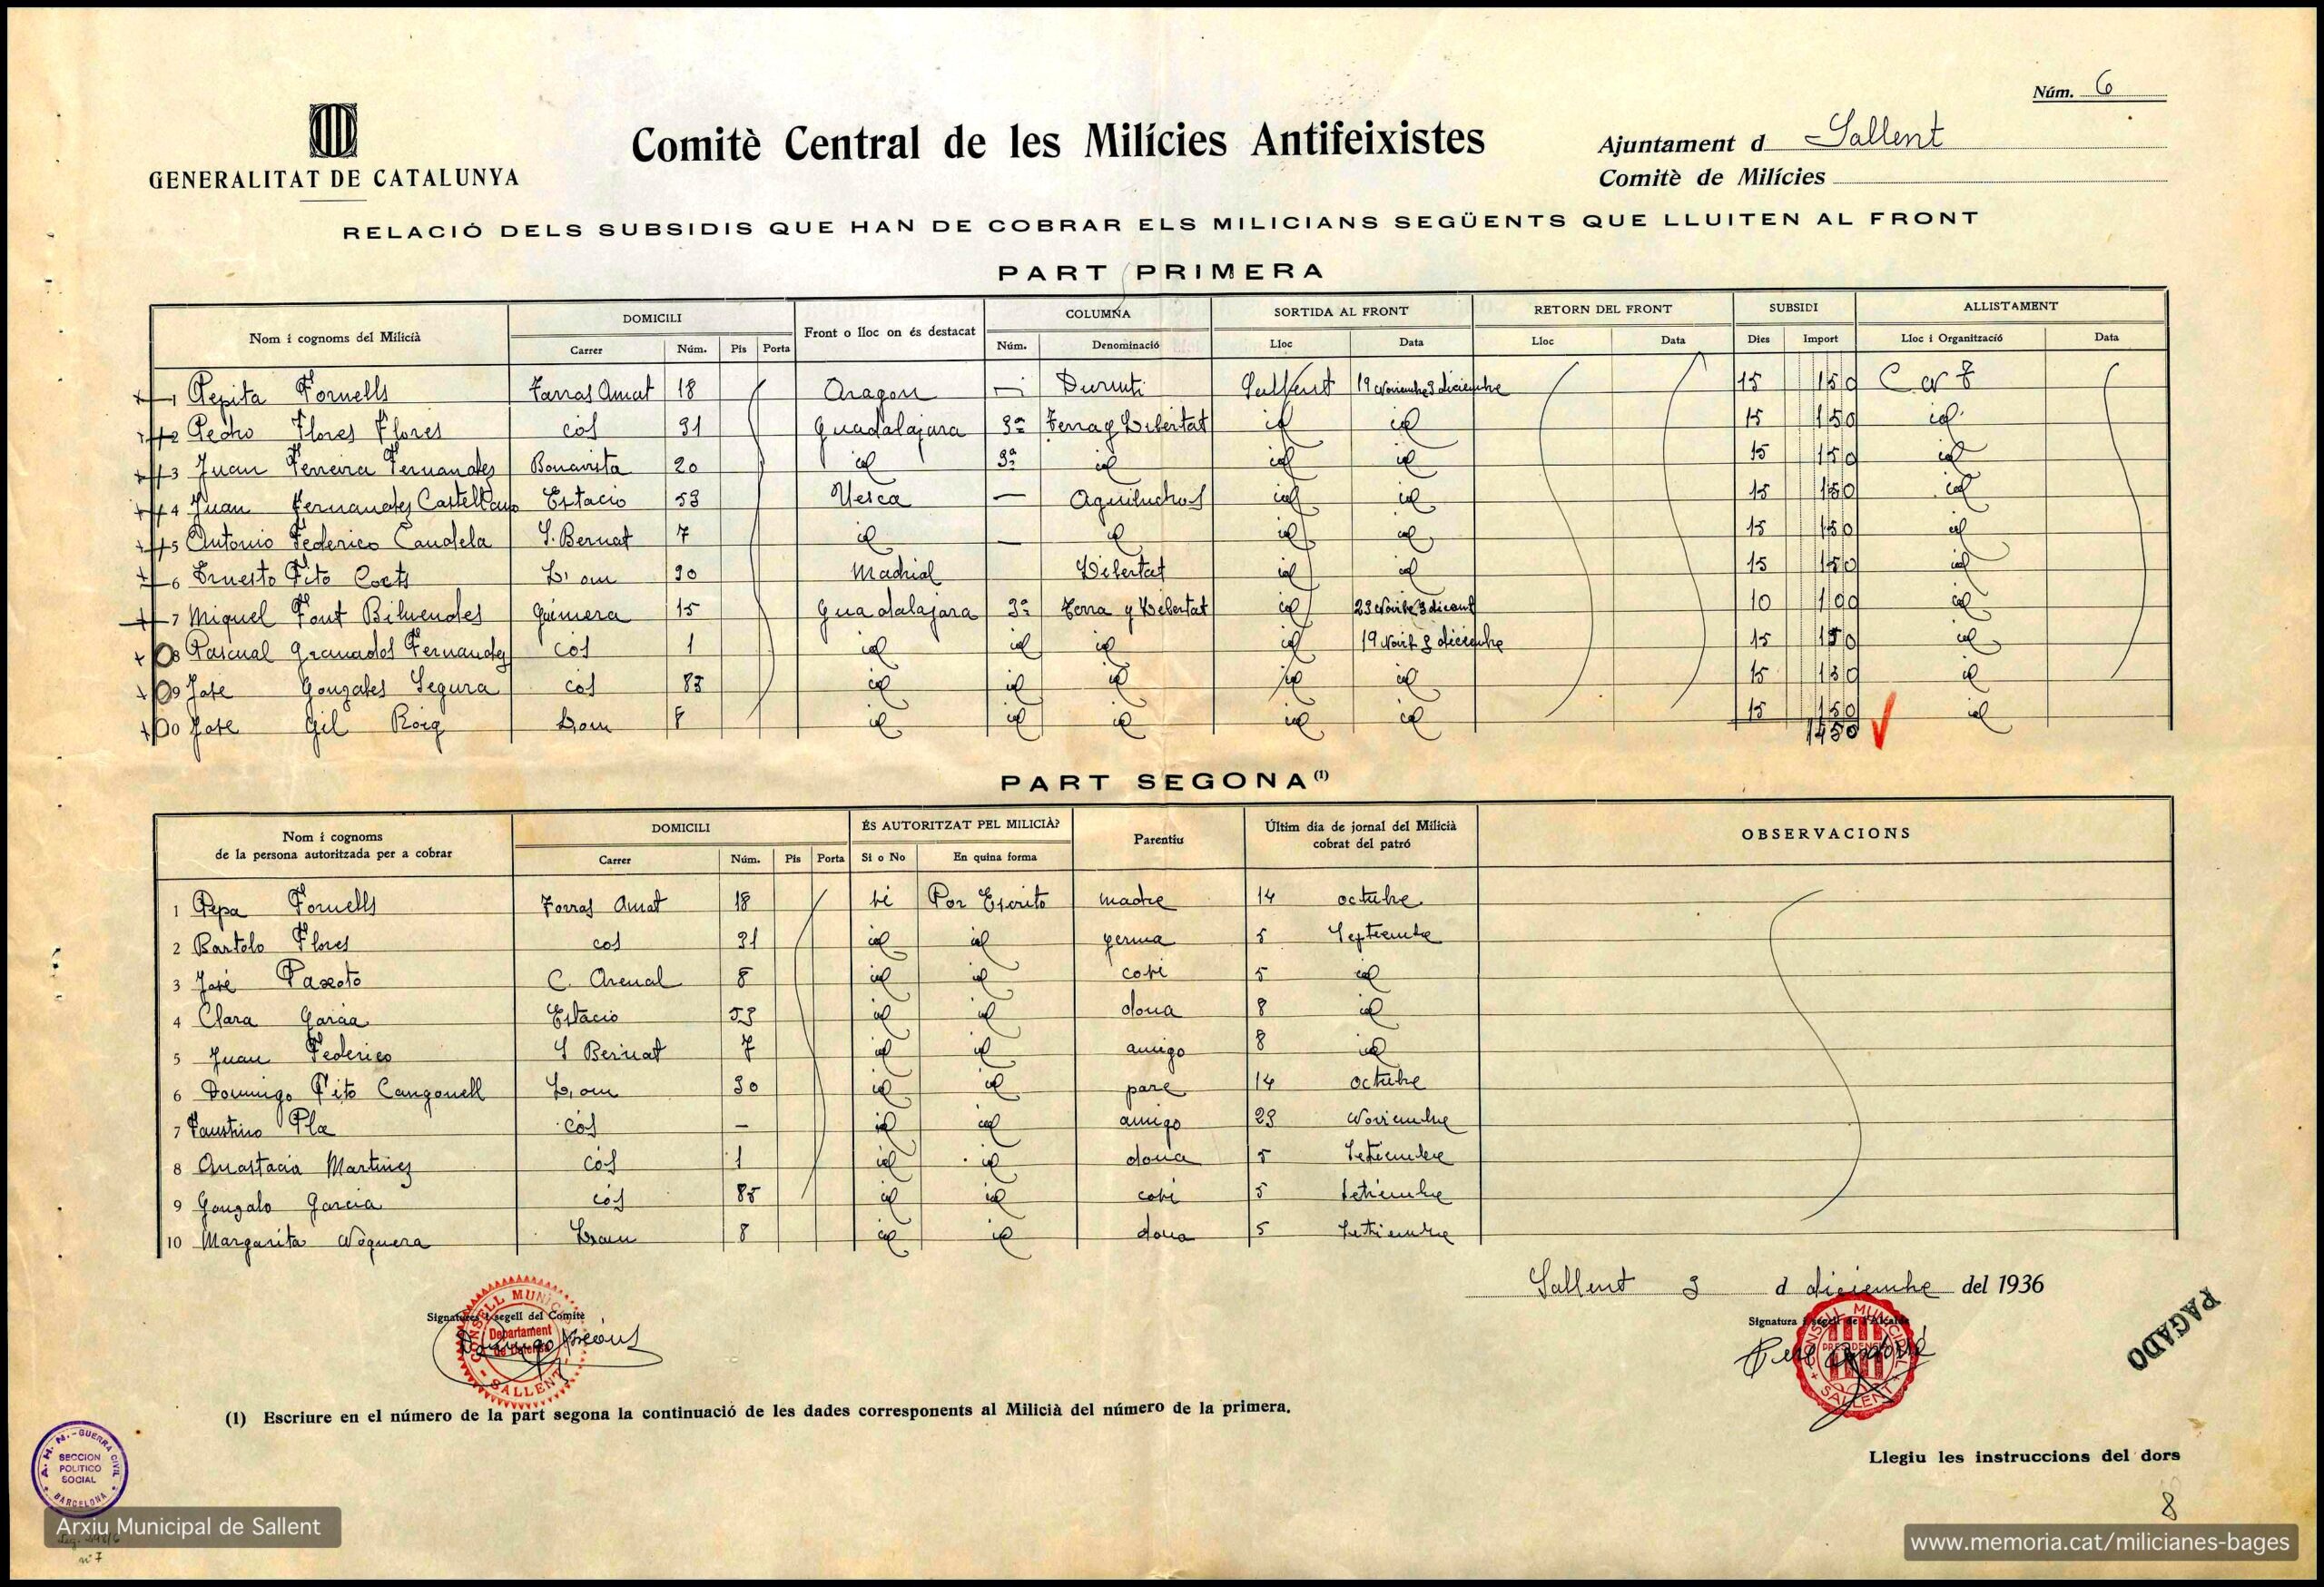 Núm. 6
GENERALITAT DE CATALUNYA
Comitè Central de les Milícies Antifeixistes
Ajuntament d Sallent
Comitè de Milícies
RELACIÓ DELS SUBSIDIS QUE HAN DE COBRAR ELS MILICIANS SEGÜENTS QUE LLUITEN AL FRONT
PART PRIMERA
Nom i cognoms del Milicià DOMICILI Front o lloc on és destacat COLUMNA SORTIDA AL FRONT RETORN DEL FRONT SUBSIDI ALLISTAMENT
Carrer Núm. Pis Porta Núm. Denominació Lloc Data Lloc Data Dies Import Lloc i Organització Data
1 Pepita Fornells Farras Amat 18 Aragon — Durruti Sallent 19 Noviembre 3 diciembre 15 150
2 Pedro Flores Flores cós 31 Guadalajara 3ª Terra y Libertat id id 15 150 id
3 Juan Ferreira Fernandes Bonavista 20 id 3ª id id id 15 150 id
4 Juan Fernandes Castellano Estacio 53 Uesca — Aguiluchos id id 15 150 id
5 Antonio Federico Candela S. Bernat 7 id — id id id 15 150 id
6 Ernesto Pito Corts L'om 30 Madrid Libertat id id 15 150 id
7 Miquel Font Bilvendes Guimera 15 Guadalajara 3ª Terra y Libertat id 10 100 id
8 Pascual Granados Fernandes cós 1 id id id id 15 150 id
9 Jose Gonzales Segura cós 85 id id id id id 15 150 id
10 Jose Gil Roig Lom 8 id id id id id 15 150 id
1450
PART SEGONA (1)
Nom i cognoms de la persona autoritzada per a cobrar DOMICILI ÉS AUTORITZAT PEL MILICIÀ? Parentiu Últim dia de jornal del Milicià cobrat del patró OBSERVACIONS
Carrer Núm. Pis Porta Si o No En quina forma
1 Pepa Fornells Farras Amat 18 si Por Escrito madre 14 octubre
2 Bartolo Flores cos 31 id id germa 5 Septiembre
3 José C. Arenal 8 id id cosi 5 id
4 Clara Garcia Estacio 53 id id dona 8 id
5 Juan Federico S Bernat 7 id id amigo 8 id
6 Domingo Pito Canganell L'om 30 id id pare 14 octubre
7 Faustino Pla cós — id id amigo 23 Noviembre
8 Anastacia Martines cós 1 id id dona 5 Setiembre
9 Gonzalo Garcia cós 85 id id cosi 5 Setiembre
10 Margarita Noguera Lom 8 id id dona 5 Setiembre
Sallent 3 d diciembre del 1936
Signatures i segell del Comitè
CONSELL MUNICIPAL
Departament de Defensa
SALLENT
Signatura i segell de l'Alcalde
CONSELL MUNICIPAL
PRESIDENCIA
SALLENT
PAGADO
(1) Escriure en el número de la part segona la continuació de les dades corresponents al Milicià del número de la primera.
Llegiu les instruccions del dors
A. H. N. - GUERRA CIVIL
SECCION
POLITICO
SOCIAL
BARCELONA
8
Arxiu Municipal de Sallent
nº 7
www.memoria.cat/milicianes-bages